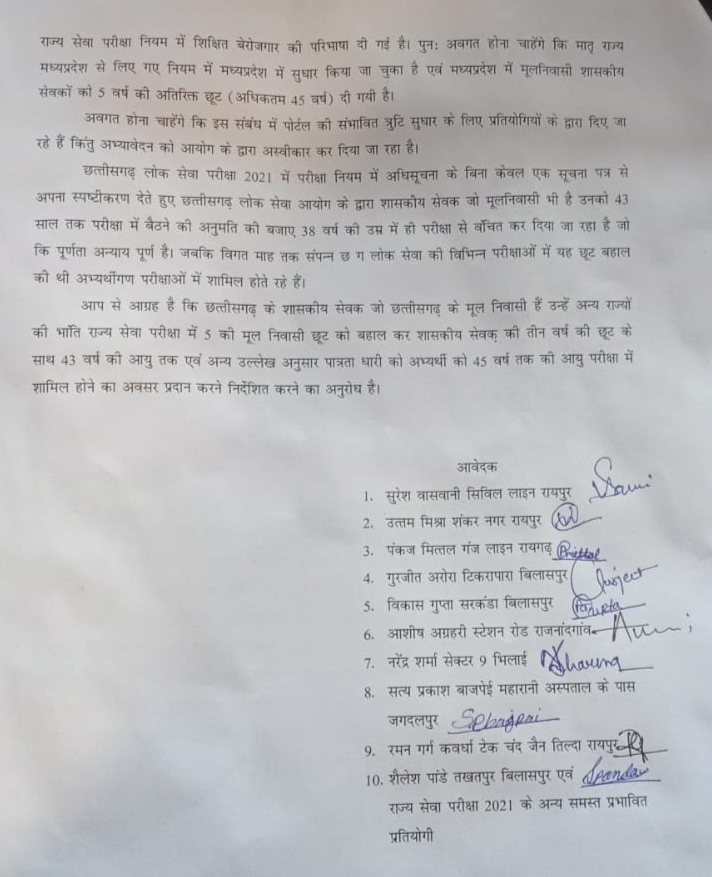 राज्य सेवा परीक्षा नियम में शिक्षित बेरोजगार की परिभाषा दी गई है। पुन: अवगत होना चाहेंगे कि मातृ राज्य
मध्यप्रदेश से लिए गए नियम में मध्यप्रदेश में सुधार किया जा चुका है एवं मध्यप्रदेश में मूलनिवासी शासकीय
सेवकों को 5 वर्ष की अतिरिक्त छूट (अधिकतम 45 वर्ष) दी गयी है।
अवगत होना चाहेंगे कि इस संबंध में पोर्टल की संभावित त्रुटि सुधार के लिए प्रतियोगियों के द्वारा दिए जा
रहे हैं किंतु अभ्यावेदन को आयोग के द्वारा अस्वीकार कर दिया जा रहा है।
छत्तीसगढ़ लोक सेवा परीक्षा 2021 में परीक्षा नियम में अधिसूचना के बिना केवल एक सूचना पत्र से
अपना स्पष्टीकरण देते हुए छत्तीसगढ़ लोक सेवा आयोग के द्वारा शासकीय सेवक जो मूलनिवासी भी है उनको 43
साल तक परीक्षा में बैठने की अनुमति की बजाए 38 वर्ष की उम्र में ही परीक्षा से वंचित कर दिया जा रहा है जो
कि पूर्णता अन्याय पूर्ण है। जबकि विगत माह तक संपन्न छ ग लोक सेवा की विभिन्न परीक्षाओं में यह छूट बहाल
की थी अभ्यर्थीगण परीक्षाओं में शामिल होते रहे हैं।
आप से आग्रह है कि छत्तीसगढ़ के शासकीय सेवक जो छत्तीसगढ़ के मूल निवासी हैं उन्हें अन्य राज्यों
की भांति राज्य सेवा परीक्षा में 5 की मूल निवासी छूट को बहाल कर शासकीय सेवक् की तीन वर्ष की छूट के
साथ 43 वर्ष की आयु तक एवं अन्य उल्लेख अनुसार पात्रता धारी को अभ्यर्थी को 45 वर्ष तक की आयु परीक्षा में
शामिल होने का अवसर प्रदान करने निर्देशित करने का अनुरोध है।
आवेदक
1. सुरेश वासवानी सिविल लाइन रायपुर
2. उत्तम मिश्रा शंकर नगर रायपुर
3. पंकज मित्तल गंज लाइन रायगढ़
4. गुरजीत अरोरा टिकरापारा बिलासपुर
5. विकास गुप्ता सरकंडा बिलासपुर Gupta
6. आशीष अग्रहरी स्टेशन रोड राजनांदगांव
7. नरेंद्र शर्मा सेक्टर 9 भिलाई Sharma
8. सत्य प्रकाश बाजपेई महारानी अस्पताल के पास
जगदलपुर Spbajpai
9. रमन गर्ग कवर्धा टेक चंद जैन तिल्दा रायपुर
10. शैलेश पांडे तखतपुर बिलासपुर एवं
राज्य सेवा परीक्षा 2021 के अन्य समस्त प्रभावित
प्रतियोगी